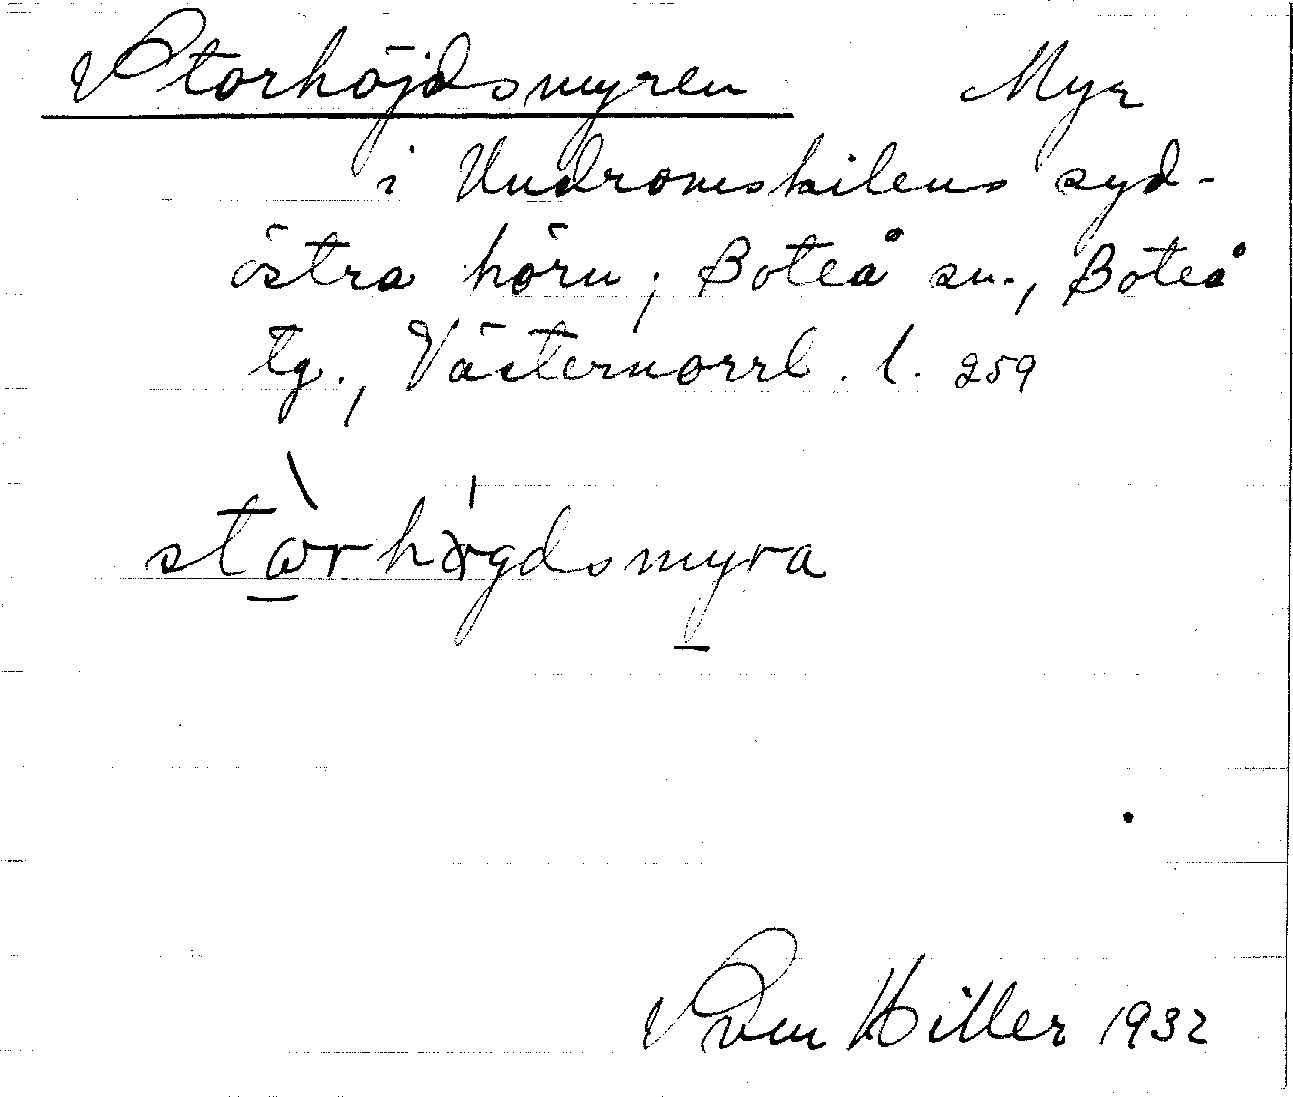 Storhöjdsmyren Myr
i Undromskilens syd-
östra hörn; Boteå sn., Boteå
tg., Västernorrl. l. 259
stòrhøgdsmyra
Sven Hiller 1932